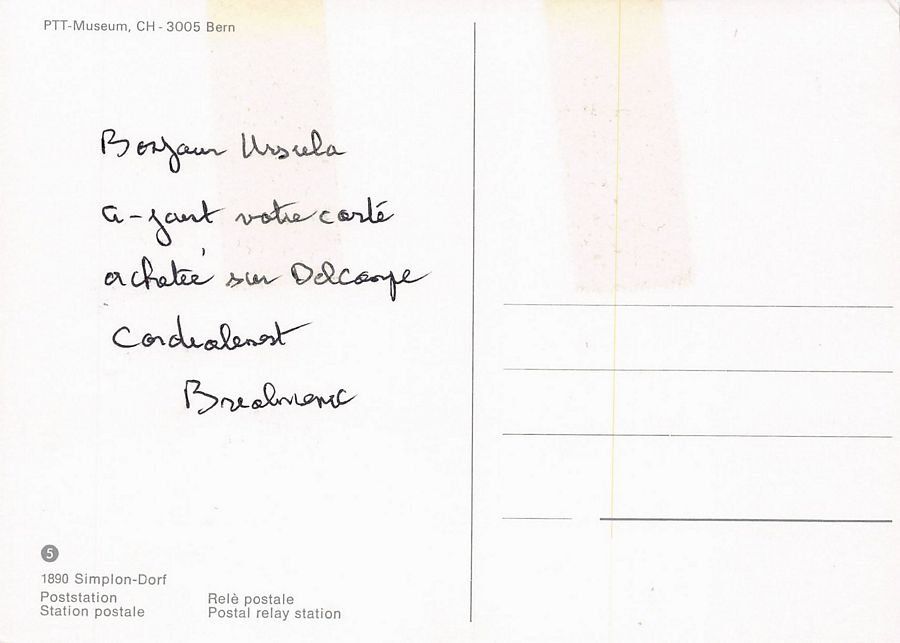 PTT-Museum, CH - 3005 Bern
Bonjour Ursula
ci-joint votre carte
achetée sur Delcampe
Cordialement
5
1890 Simplon-Dorf
Poststation
Station postale
Relè postale
Postal relay station